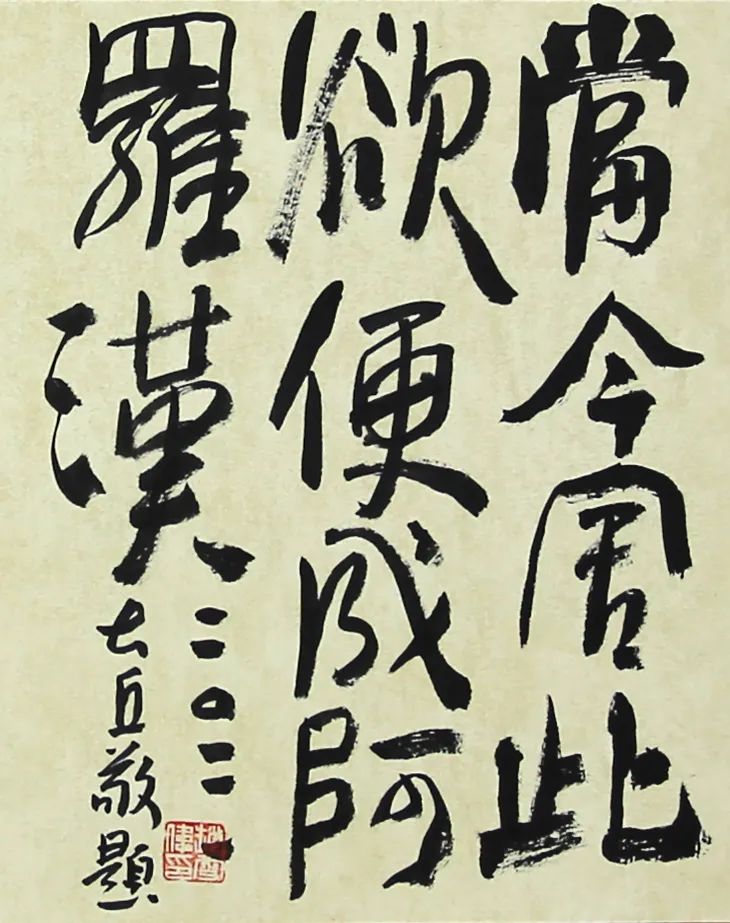 當今此
欲便成阿
羅漢
二〇二
丘敬題